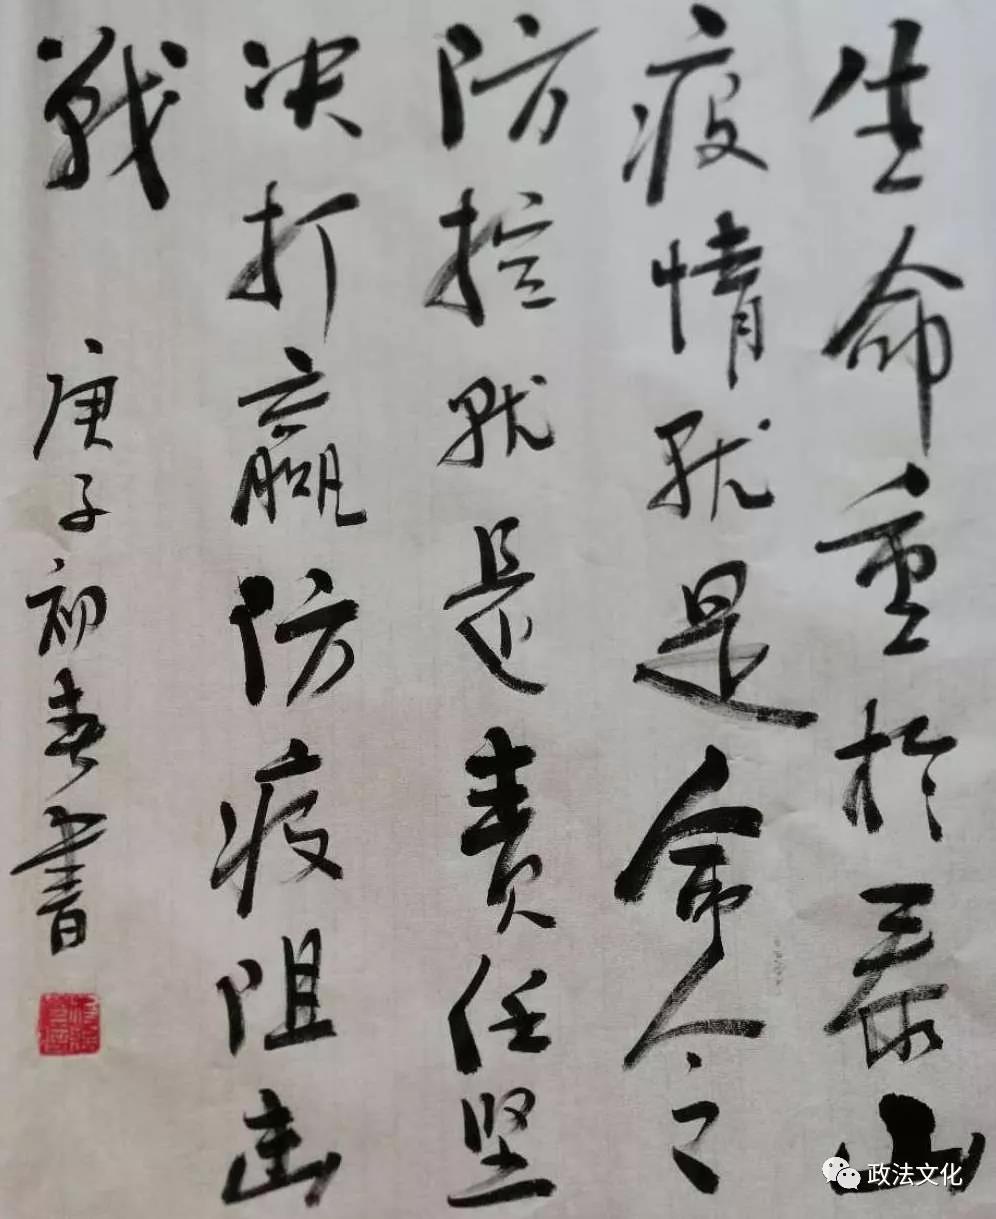 生命重於泰山
疫情就是命令
防控就是责任坚
决打赢防疫阻击
戰
庚子初春书
政法文化